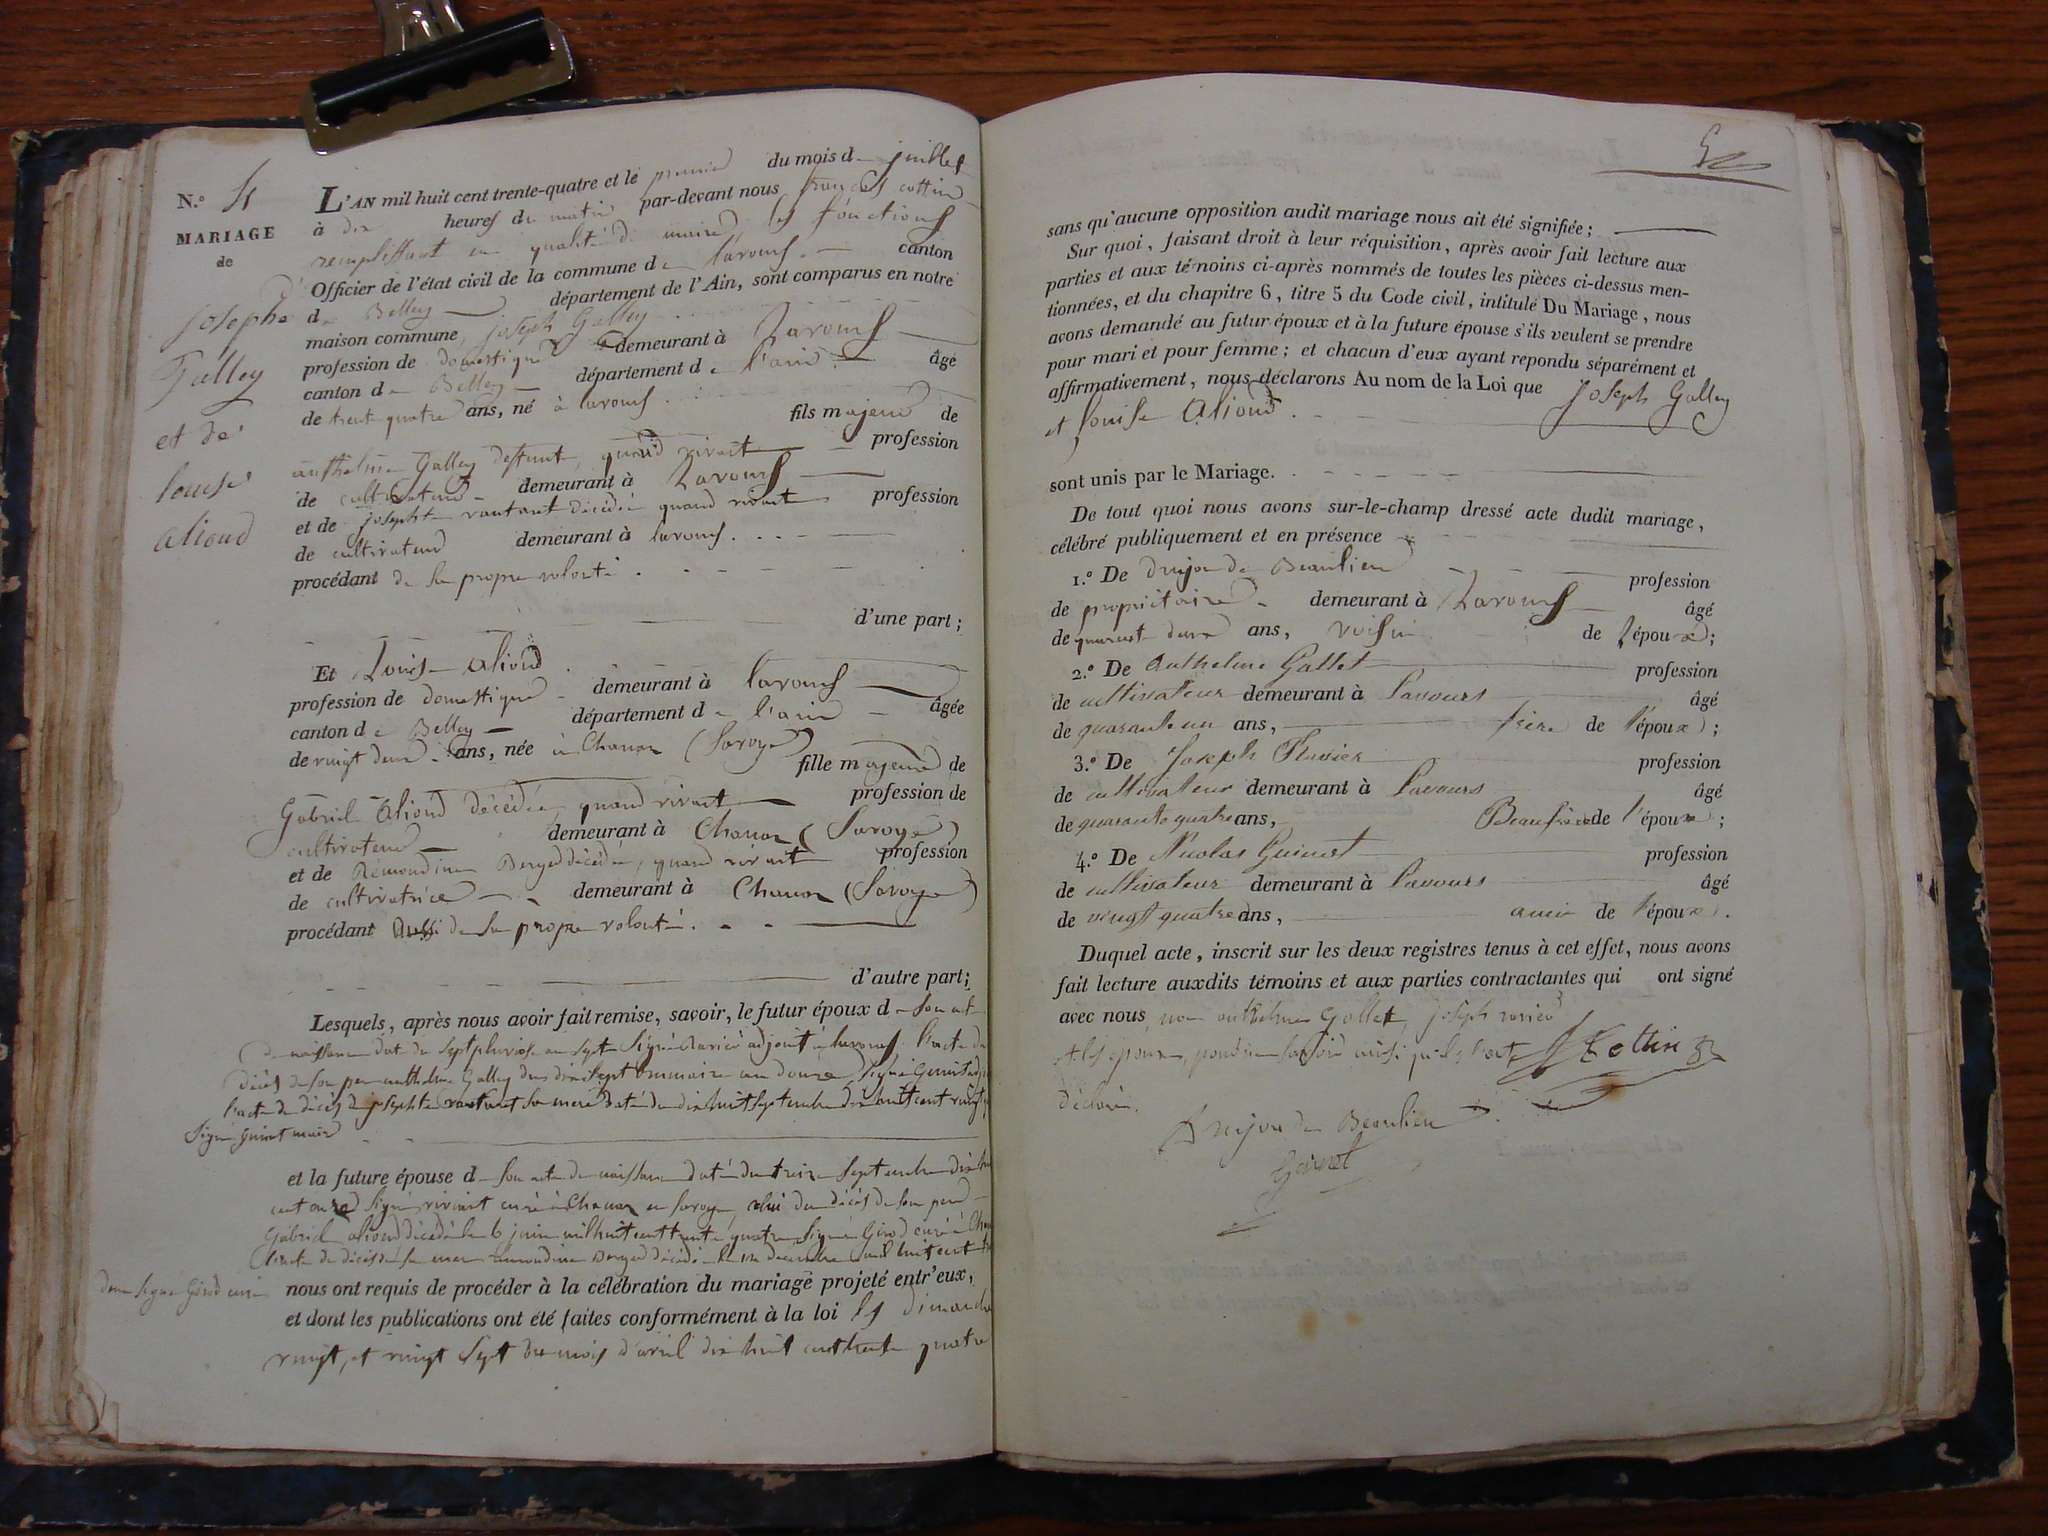 N.° 4
MARIAGE
de
Joseph
Galley
et de
louise
alioud
L'AN mil huit cent trente-quatre et le premier du mois d juillet
à dix heures du matin par-devant nous françois cottin
remplissant en qualité de maire les fonctions
d'Officier de l'état civil de la commune de lavours canton
de Belley département de l'Ain, sont comparus en notre
maison commune, joseph Galley
profession de domestique demeurant à Lavours
canton de Belley département de l'ain âgé
de trente quatre ans, né à lavours fils majeur de
anthelme Galley deffunt, quand vivait profession
de cultivateur demeurant à Lavours
et de josephte vantant décédée quand vivait profession
de cultivateur demeurant à lavours
procédant de sa propre volonté
d'une part;
Et Louise alioud
profession de domestique demeurant à lavours
canton de Belley département de l'ain âgée
de vingt deux ans, née à Chanaz (Savoye)
fille majeure de
Gabriel alioud décédé, quand vivait profession de
cultivateur demeurant à Chanaz (Savoye)
et de Rémondine Berger décédée, quand vivait profession
de cultivatrice demeurant à Chanaz (Savoye)
procédant aussi de sa propre volonté.
d'autre part;
Lesquels, après nous avoir fait remise, savoir, le futur époux de son acte
de naissance daté du sept pluviose an sept signé adjoint à lavours l'acte de
décès de son père anthelme Galley du dix sept an douze signé
l'acte de décès de josephte vantant sa mère daté du dix huit septembre dix huit cent vingt
signé Guinet maire
et la future épouse de son acte de naissance daté du treize septembre dix huit
cent onze signé curé à Chanaz en Savoye, celui du décès de son père
Gabriel alioud décédé le 6 juin mil huit cent trente quatre signé Girod curé à
l'acte de décès de sa mère Rémondine Berger décédée le décembre mil huit cent
deux signé Girod curé nous ont requis de procéder à la célébration du mariage projeté entr'eux,
et dont les publications ont été faites conformément à la loi les dimanche
vingt, et vingt sept du mois d'avril dix huit cent trente quatre
sans qu'aucune opposition audit mariage nous ait été signifiée;
Sur quoi, faisant droit à leur réquisition, après avoir fait lecture aux
parties et aux témoins ci-après nommés de toutes les pièces ci-dessus men-
tionnées, et du chapitre 6, titre 5 du Code civil, intitulé Du Mariage, nous
avons demandé au futur époux et à la future épouse s'ils veulent se prendre
pour mari et pour femme; et chacun d'eux ayant repondu séparément et
affirmativement, nous déclarons Au nom de la Loi que Joseph Galley
et louise alioud
sont unis par le Mariage.
De tout quoi nous avons sur-le-champ dressé acte dudit mariage,
célébré publiquement et en présence
1.° De drujon de Beaulieu profession
de propriétaire demeurant à Lavours âgé
de quarante deux ans, voisin de l'époux;
2.° De Anthelme Gallet profession
de cultivateur demeurant à Lavours âgé
de quarante un ans, frère de l'époux;
3.° De Joseph profession
de cultivateur demeurant à Lavours âgé
de quarante quatre ans, Beaufrère de l'époux;
4.° De Nicolas Guinet profession
de cultivateur demeurant à Lavours âgé
de vingt quatre ans, ami de l'époux.
Duquel acte, inscrit sur les deux registres tenus à cet effet, nous avons
fait lecture auxdits témoins et aux parties contractantes qui ont signé
avec nous, non anthelme Gallet, joseph
et les époux, pour ne savoir ainsi qu'ils l'ont Cottin
déclaré.
Drujon de Beaulieu
Guinet